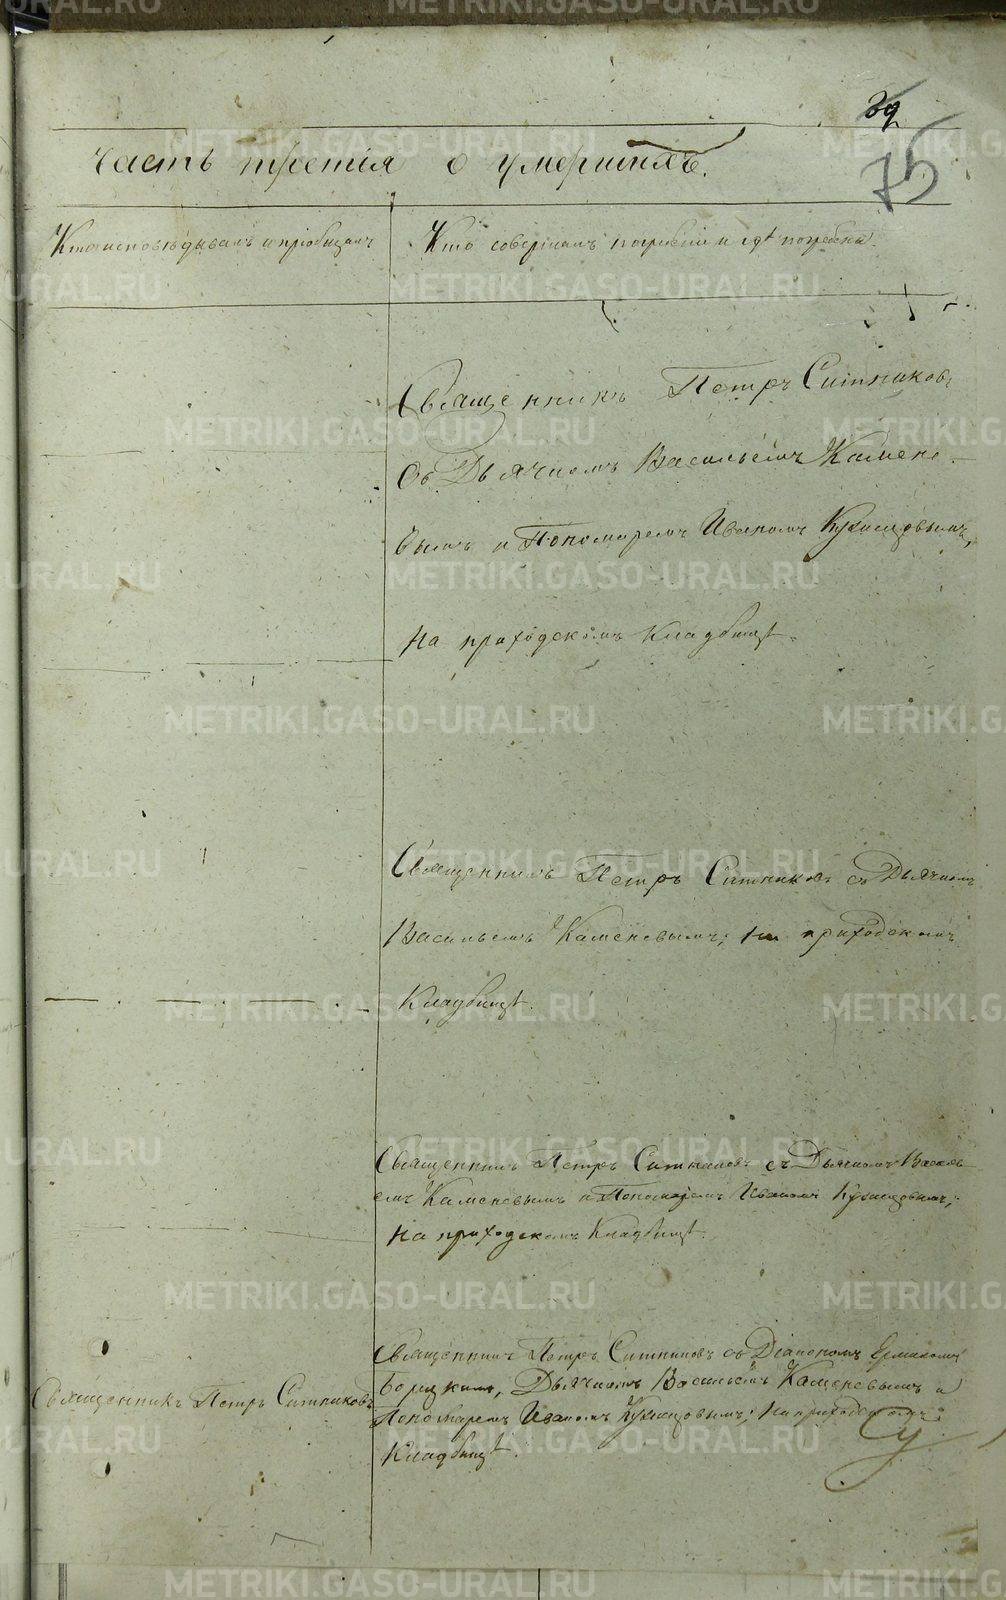 39
75
Часть третія о умершихъ.
Кто исповѣдывалъ и пріобщалъ
Кто совершалъ погребеніе и гдѣ погребены
Священникъ Петръ Ситниковъ
съ Дьячкомъ Васильемъ Камене-
вымъ и Пономаремъ Иваномъ
на приходскомъ кладбищѣ.
Священникъ Петръ Ситниковъ съ Дьячкомъ
Васильемъ Каменевымъ; на приходскомъ
Кладбищѣ.
Священникъ Петръ Ситниковъ съ Дьячкомъ Василь
емъ Каменевымъ и Пономаремъ Иваномъ
на приходскомъ Кладбищѣ.
Священникъ Петръ Ситниковъ
Священникъ Петръ Ситниковъ съ Діакономъ
Дьячкомъ Васильемъ Каменевымъ и
Пономаремъ Иваномъ на приходскомъ
Кладбищѣ.
METRIKI.GASO-URAL.RU